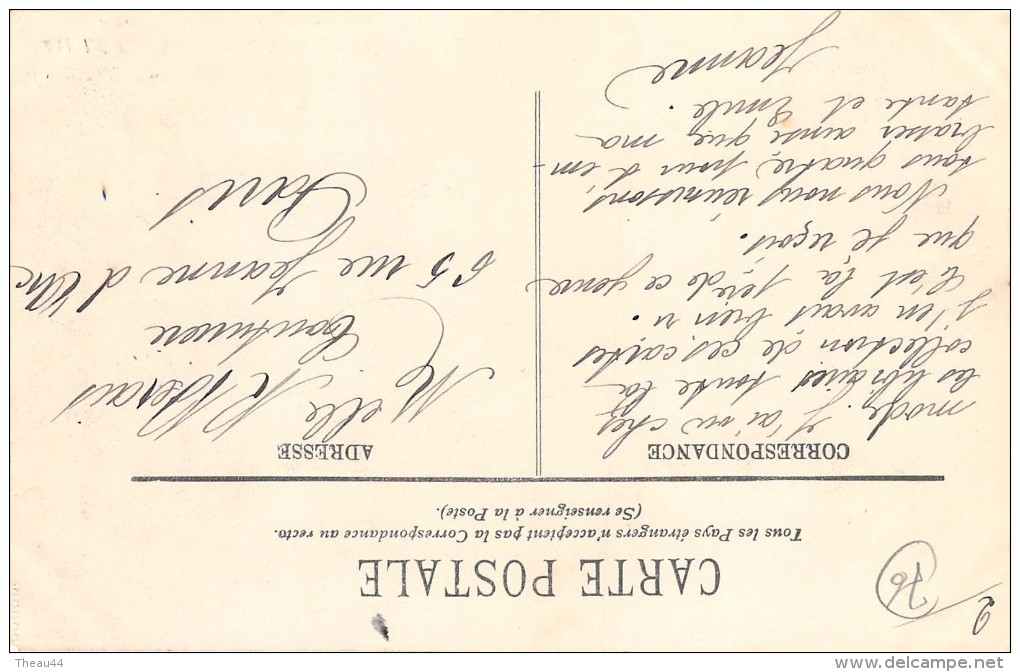 CARTE POSTALE
Tous les Pays étrangers n'acceptent pas la Correspondance au recto.
(Se renseigner à la Poste).
CORRESPONDANCE
mode. J'ai vu chez
les libraires toute la
collection de ces cartes
j'en avais bien ri.
C'est la 1ère de ce genre
que je reçois.
Nous nous réunissons
tous quatre, pour t'em-
brasser ainsi que ma
tante et Emile.
Jeanne
ADRESSE
Melle
Couturière
65 rue Jeanne d'Arc
Paris
76
2
Theau44
www.delcampe.net